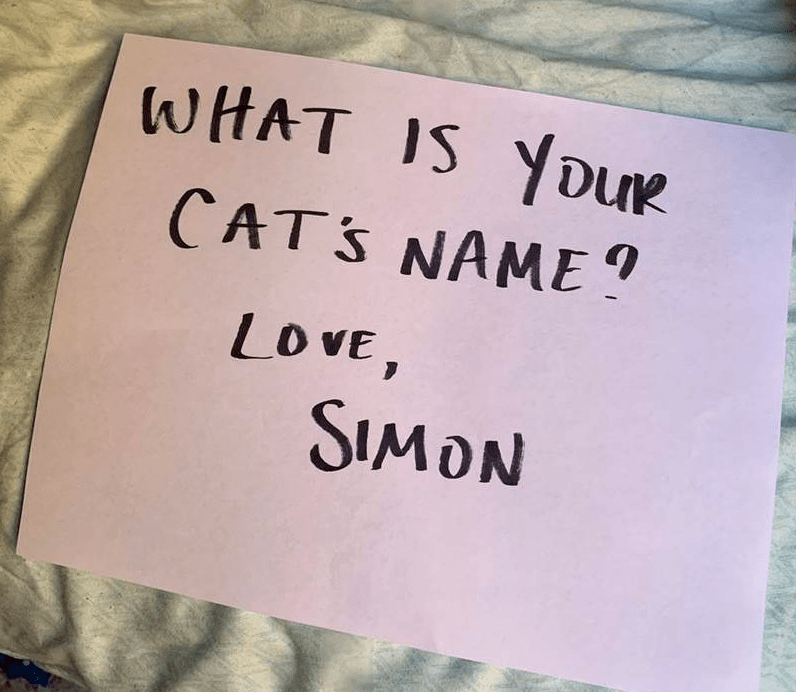 WHAT IS YOUR
CAT'S NAME?
LOVE,
SIMON